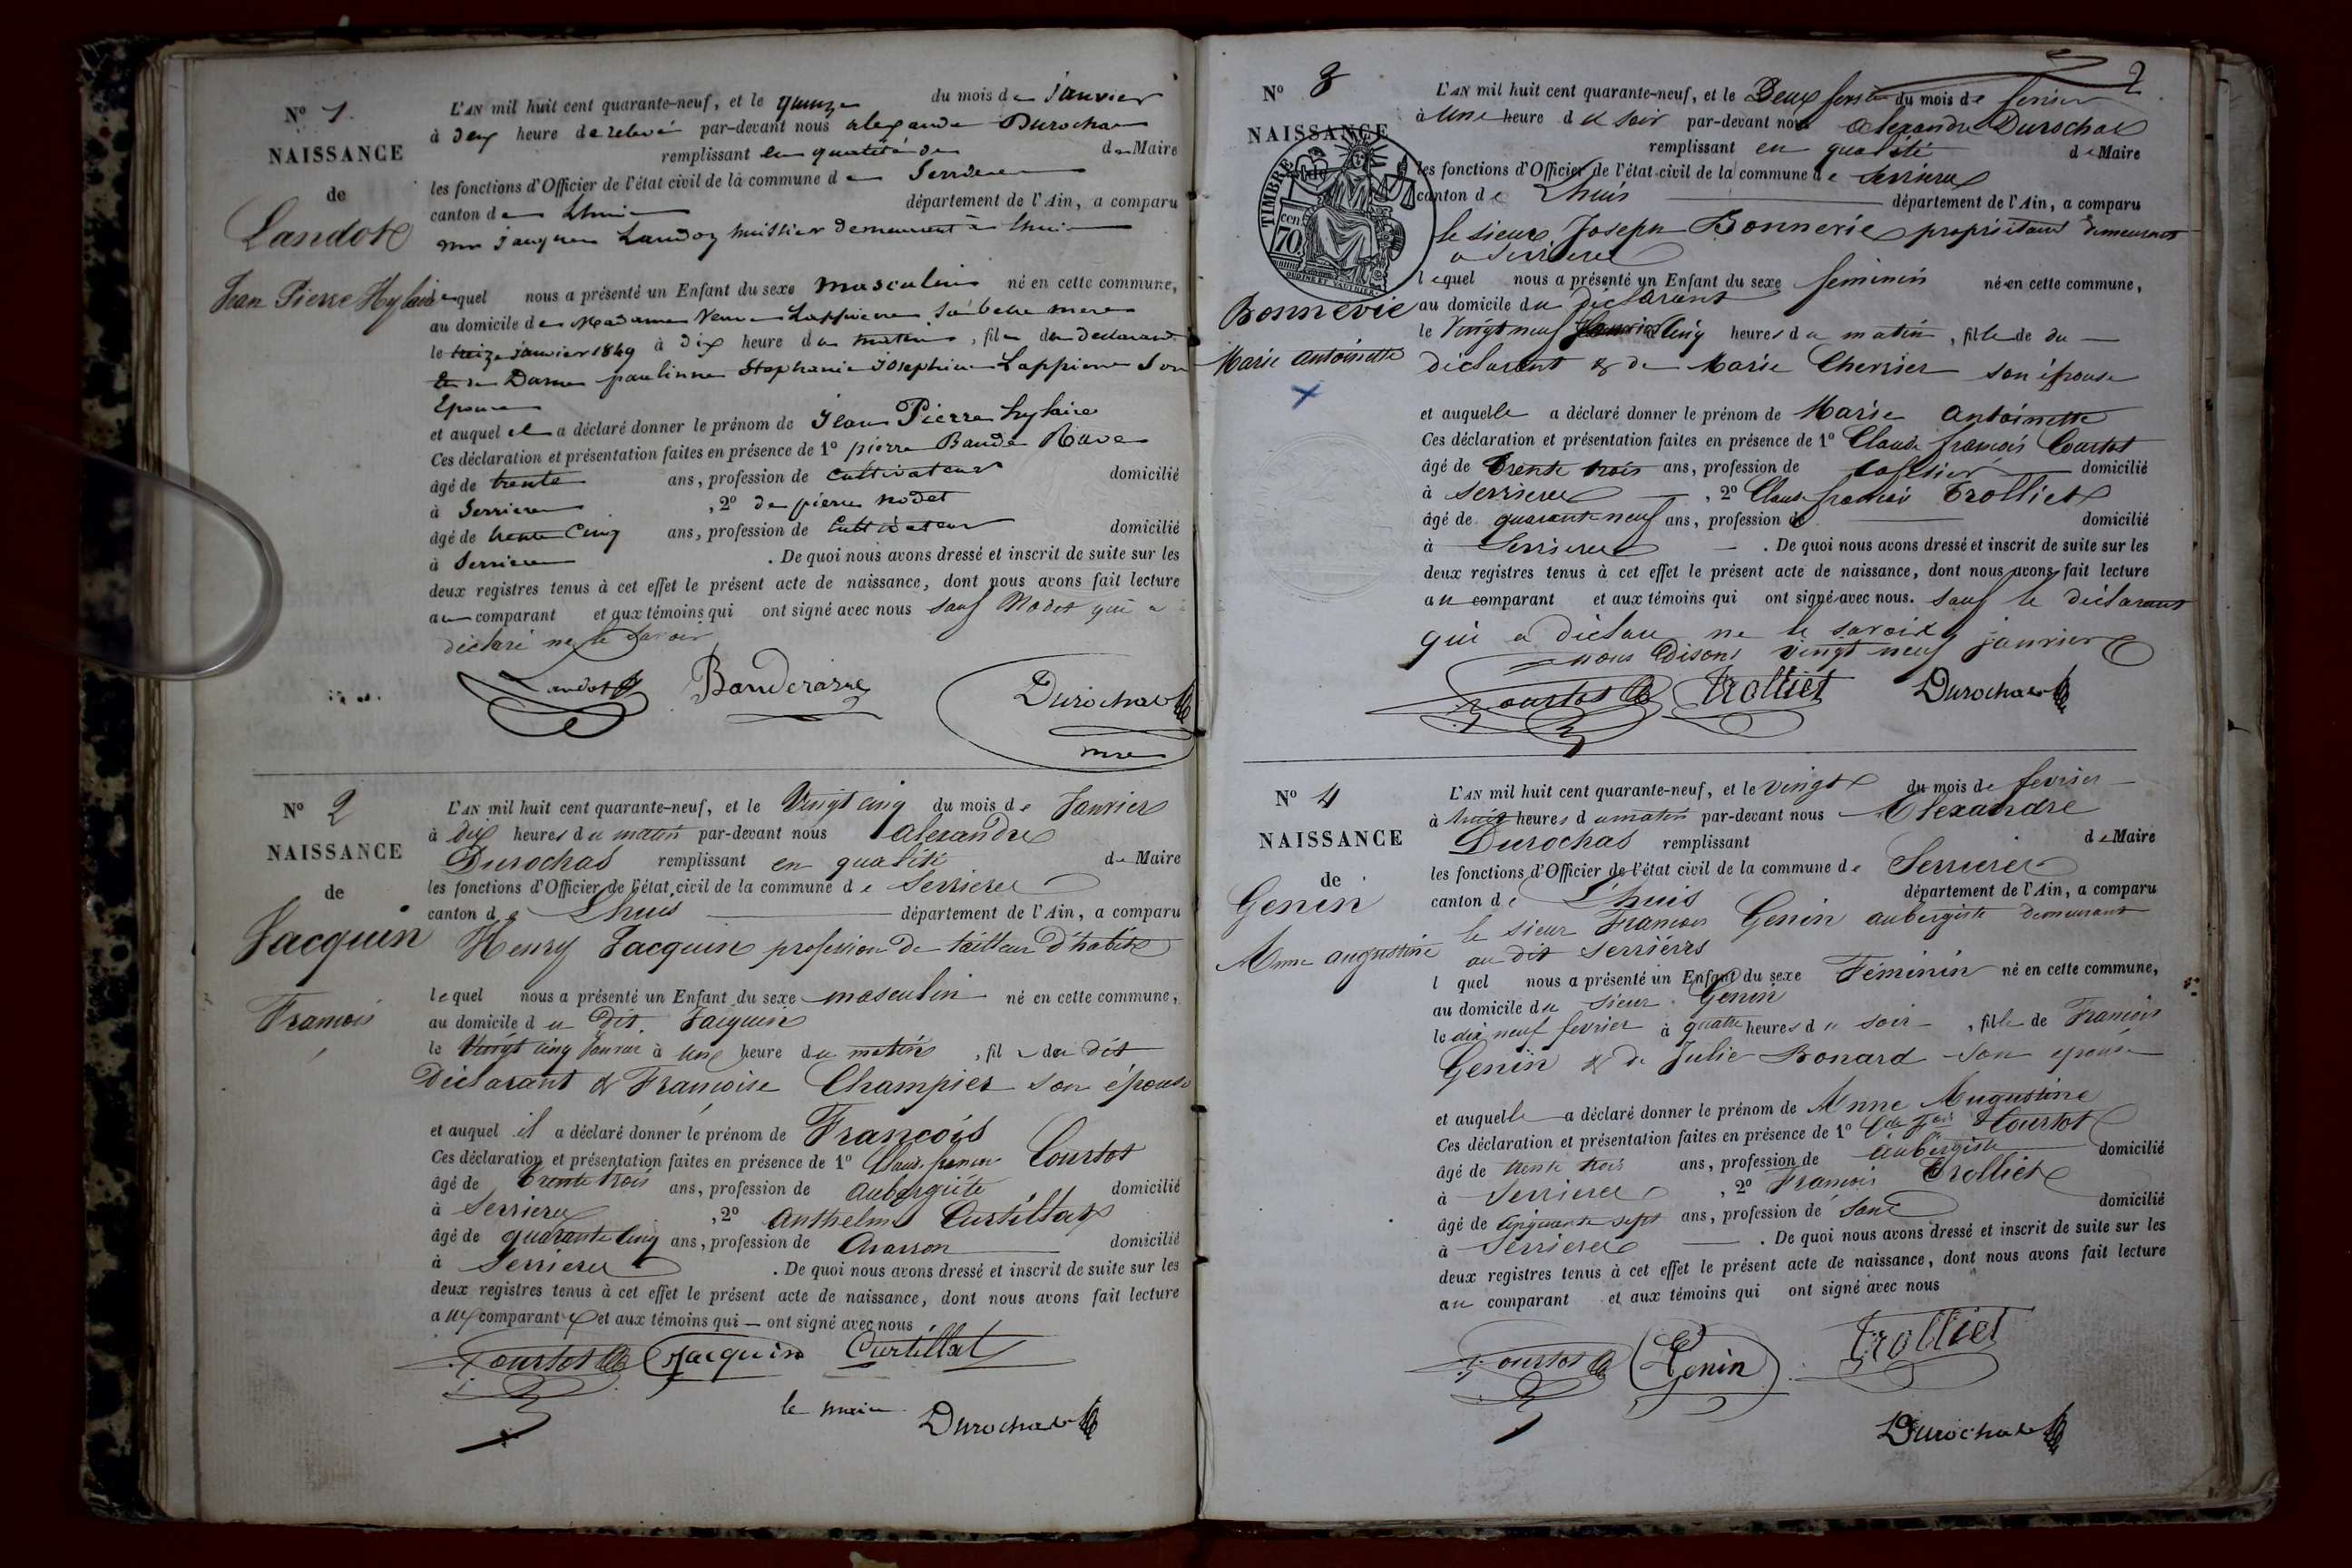 N° 1.
NAISSANCE
de
Landot
Jean Pierre Hylaire
L'AN mil huit cent quarante-neuf, et le quinze du mois de Janvier
à deux heure de relevée par-devant nous alexandre Durochat
remplissant en qualité de de Maire
les fonctions d'Officier de l'état civil de la commune de Serrieres
canton de Lhuis département de l'Ain, a comparu
mr jacques Landoz huissier demeurant à Lhuis
lequel nous a présenté un Enfant du sexe masculin né en cette commune,
au domicile de Madame Veuve Lappierre sa belle mere
le treize janvier 1849 à dix heure du matin, fils du declarant
et de Dame paulinne Stephanie Josephine Lappierre Son
Epouse
et auquel il a déclaré donner le prénom de Jean Pierre hylaire
Ces déclaration et présentation faites en présence de 1° pierre Baude Rave
âgé de trente ans, profession de cultivateur domicilié
à Serrieres, 2° de pierre nodet
âgé de trente Cinq ans, profession de Cultivateur domicilié
à Serrieres . De quoi nous avons dressé et inscrit de suite sur les
deux registres tenus à cet effet le présent acte de naissance, dont nous avons fait lecture
au comparant et aux témoins qui ont signé avec nous sauf Nodet qui a
déclaré ne le savoir
Landot Banderasse Durochat
mre
N° 2
NAISSANCE
de
Jacquin
François
L'AN mil huit cent quarante-neuf, et le Vingt cinq du mois de Janvier
à dix heures du matin par-devant nous alexandre
Durochat remplissant en qualité de Maire
les fonctions d'Officier de l'état civil de la commune de Serrieres
canton de Lhuis département de l'Ain, a comparu
Henry Jacquin profession de tailleur d'habits
lequel nous a présenté un Enfant du sexe masculin né en cette commune,
au domicile du dit Jacquin
le Vingt cinq Janvier à une heure du matin, fil du dit
Déclarant & Françoise Champier son épouse
et auquel il a déclaré donner le prénom de François
Ces déclaration et présentation faites en présence de 1° Claude francois Courtot
âgé de trente trois ans, profession de Aubergiste domicilié
à Serrieres, 2° Anthelme Curtillat
âgé de quarante cinq ans, profession de domicilié
à Serrieres . De quoi nous avons dressé et inscrit de suite sur les
deux registres tenus à cet effet le présent acte de naissance, dont nous avons fait lecture
aux comparant et aux témoins qui — ont signé avec nous
Courtot Jacquin Curtillat
le maire Durochat
2
N° 3
NAISSANCE
de
TIMBRE
cen
70
OUDINE ET VAUTHIER
Bonnevie
Marie Antoinette
L'AN mil huit cent quarante-neuf, et le Deux du mois de fevrier
à une heure du soir par-devant nous Alexandre Durochat
remplissant en qualité de Maire
les fonctions d'Officier de l'état civil de la commune de Serrieres
canton de Lhuis département de l'Ain, a comparu
le sieur Joseph Bonnevie propriétaire demeurant
a Serrieres
lequel nous a présenté un Enfant du sexe feminin né en cette commune,
au domicile du déclarant
le Vingt neuf Janvier à Cinq heures du matin, fille de du
déclarant & de Marie Cherrier son épouse
et auquelle a déclaré donner le prénom de Marie Antoinette
Ces déclaration et présentation faites en présence de 1° Claude francois Courtot
âgé de trente trois ans, profession de domicilié
à Serrieres, 2° Claude francois Trolliet
âgé de quarante neuf ans, profession de domicilié
à Serrieres . De quoi nous avons dressé et inscrit de suite sur les
deux registres tenus à cet effet le présent acte de naissance, dont nous avons fait lecture
au comparant et aux témoins qui ont signé avec nous. sauf le déclarant
qui a déclaré ne le savoir
nous Disons vingt neuf janvier
Courtot Trolliet Durochat
N° 4
NAISSANCE
de
Genin
Anne augustine
L'AN mil huit cent quarante-neuf, et le vingt du mois de fevrier
à huit heures du matin par-devant nous Alexandre
Durochat remplissant de Maire
les fonctions d'Officier de l'état civil de la commune de Serrieres
canton de Lhuis département de l'Ain, a comparu
le sieur Francois Genin aubergiste demeurant
au dit Serrières
l quel nous a présenté un Enfant du sexe Féminin né en cette commune,
au domicile du sieur Genin
le dix neuf fevrier à quatre heures du soir, fille de Francois
Genin & de Julie Bonard son epouse
et auquelle a déclaré donner le prénom de Anne Augustine
Ces déclaration et présentation faites en présence de 1° Cde Fois Courtot
âgé de trente trois ans, profession de aubergiste domicilié
à Serrieres, 2° Francois Trolliet
âgé de cinquante sept ans, profession de sans domicilié
à Serrieres . De quoi nous avons dressé et inscrit de suite sur les
deux registres tenus à cet effet le présent acte de naissance, dont nous avons fait lecture
au comparant et aux témoins qui ont signé avec nous
Courtot Genin Trolliet
Durochat